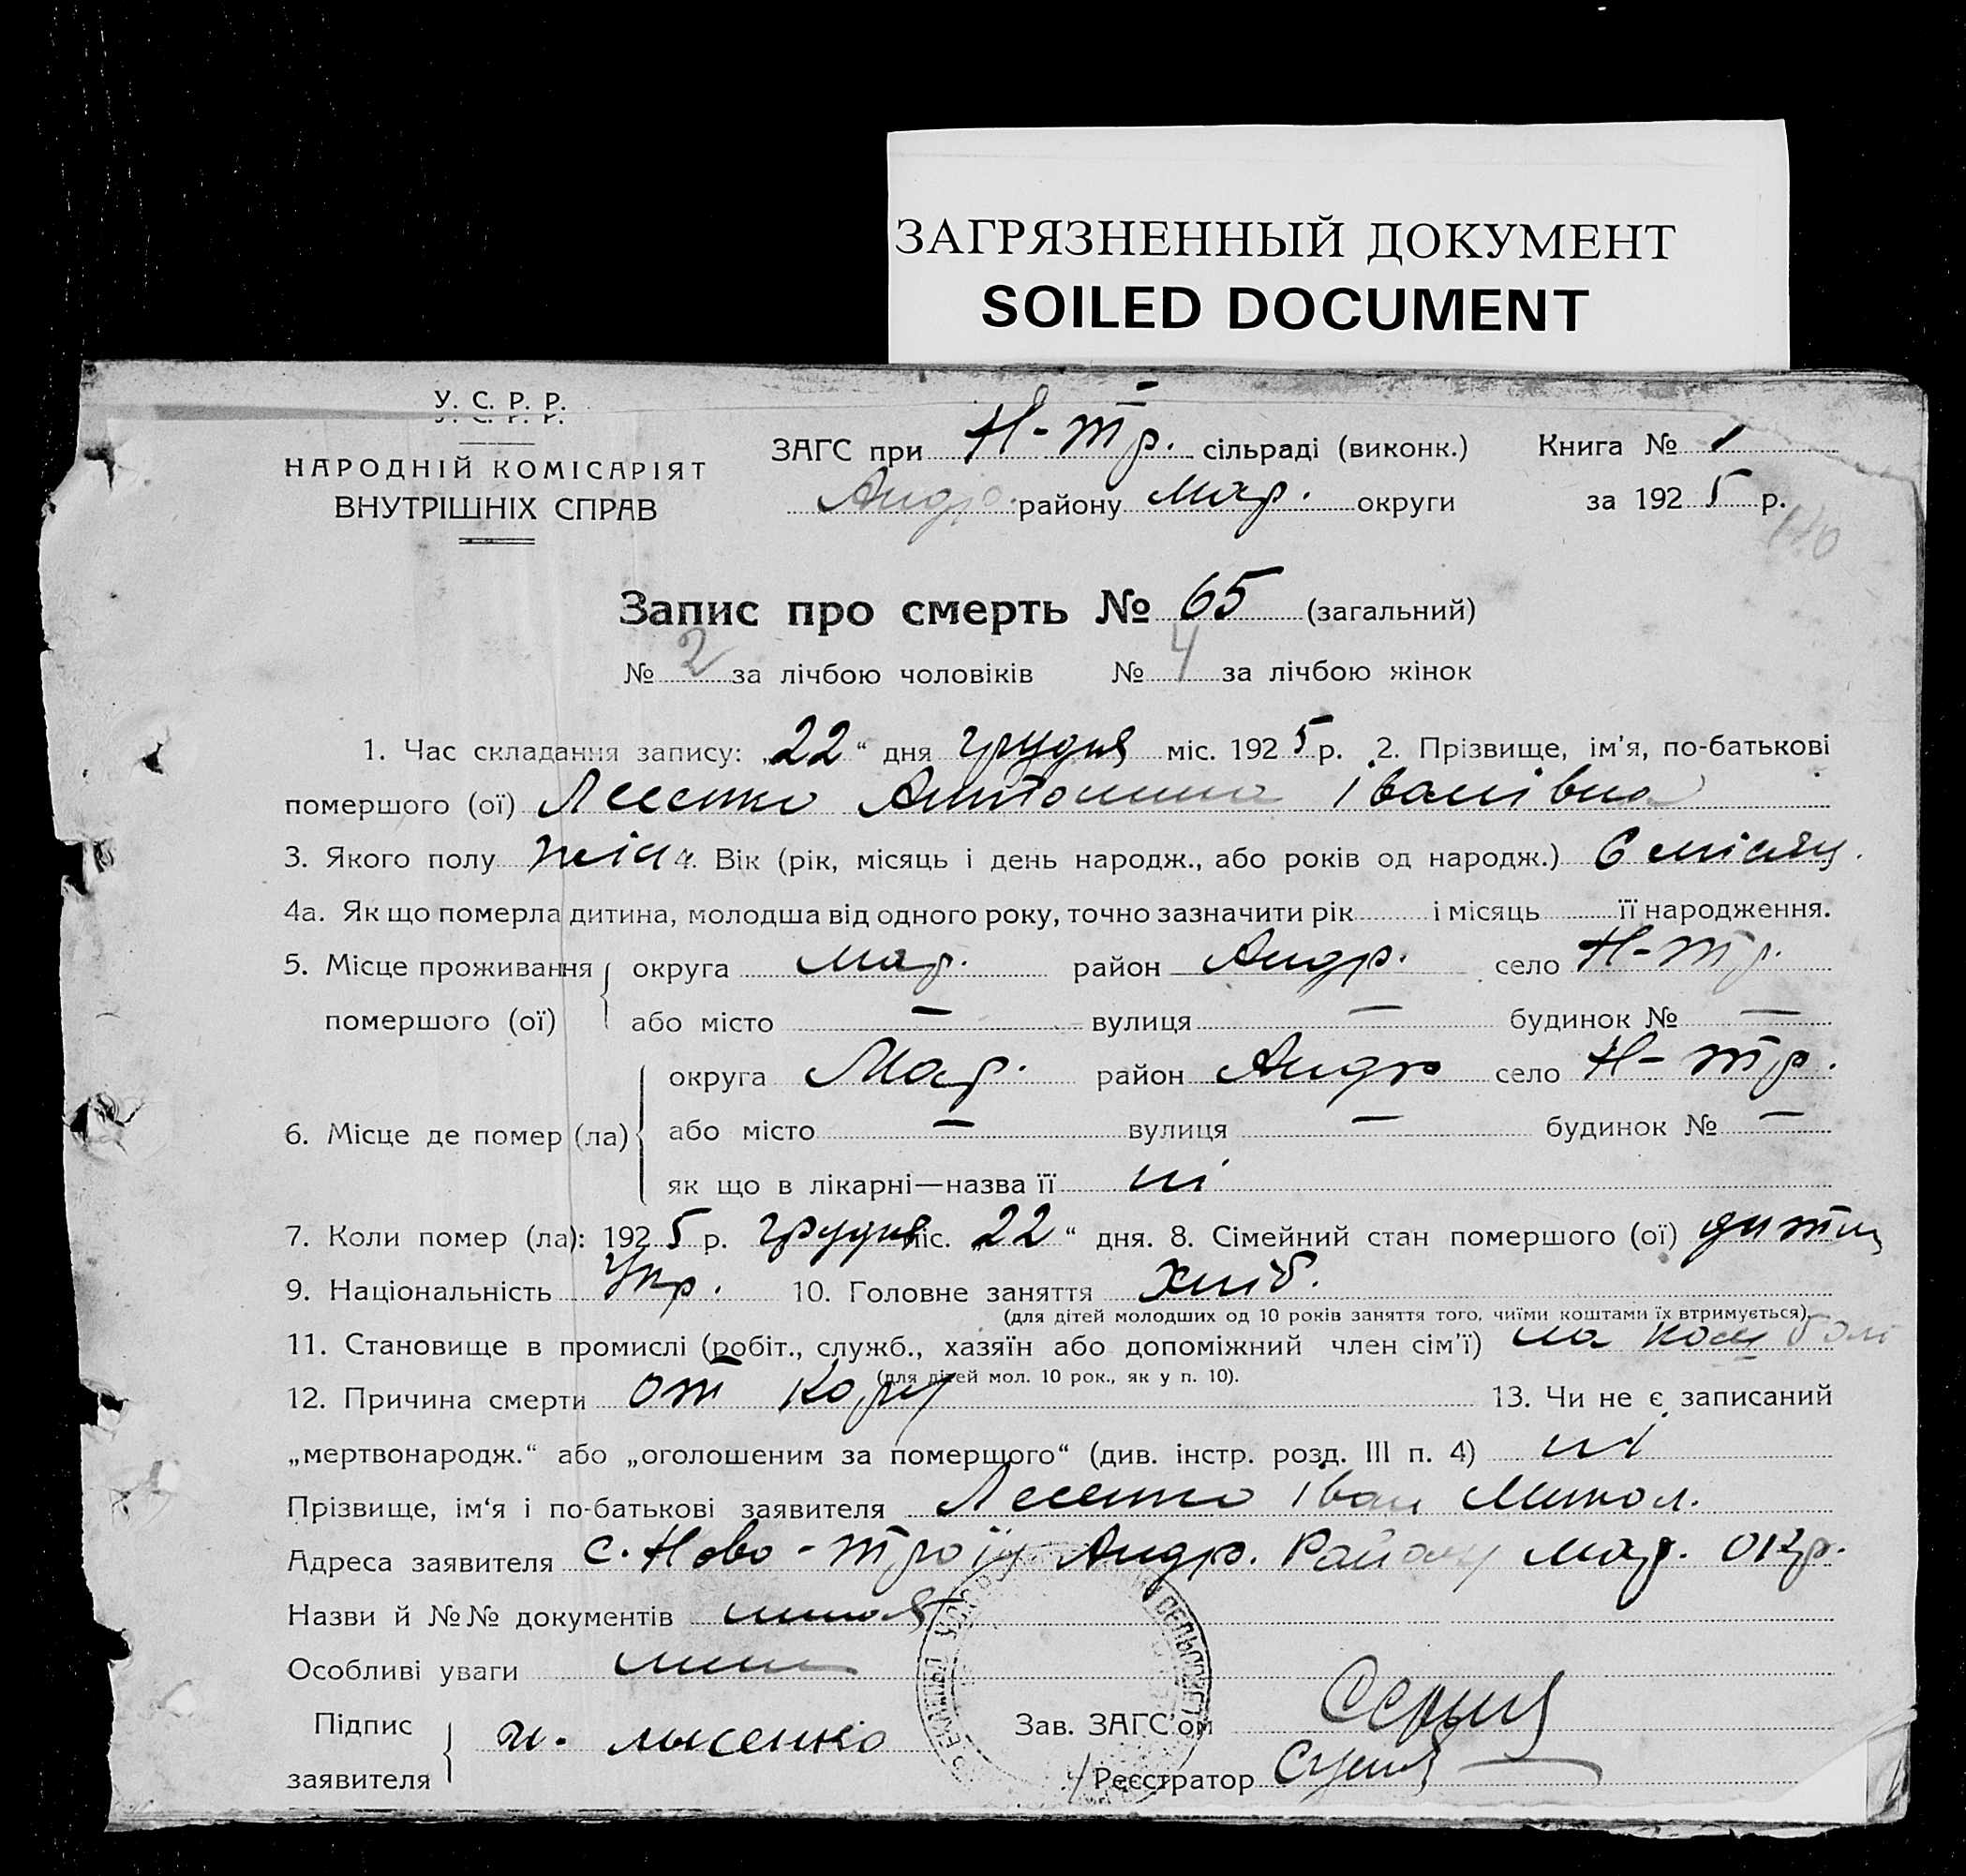 ЗАГРЯЗНЕННЫЙ ДОКУМЕНТ
SOILED DOCUMENT
У. С. Р. Р.
НАРОДНІЙ КОМІСАРІЯТ
ВНУТРІШНІХ СПРАВ
ЗАГС при Н-Тр. сільраді (виконк.) Книга № 1
Андр. району Мар. округи за 1925 р.
Запис про смерть № 65 (загальний)
№ 2 за лічбою чоловіків № 4 за лічбою жінок
1. Час складання запису: „22“ дня грудня міс. 1925 р. 2. Прізвище, ім'я, по-батькові
помершого (ої) Лесенко Антонина Іванівна
3. Якого полу жіч 4. Вік (рік, місяць і день народж., або років од народж.) 6 місяц.
4а. Як що померла дитина, молодша від одного року, точно зазначити рік і місяць її народження.
5. Місце проживання округа Мар. район Андр. село Н-Тр.
помершого (ої) або місто — вулиця — будинок № —
округа Мар. район Андр село Н-Тр.
6. Місце де помер (ла) або місто — вулиця — будинок № —
як що в лікарні—назва її ні
7. Коли помер (ла): 1925 р. грудня міс. „22“ дня. 8. Сімейний стан помершого (ої) дитин
9. Національність Укр. 10. Головне заняття хліб.
(для дітей молодших од 10 років заняття того, чиїми коштами їх втримується).
11. Становище в промислі (робіт., служб., хазяїн або допоміжний член сім'ї) на кош
(для дітей мол. 10 рок., як у п. 10).
12. Причина смерти от кору 13. Чи не є записаний
„мертвонародж.“ або „оголошеним за помершого“ (див. інстр. розд. III п. 4) ні
Прізвище, ім‘я і по-батькові заявителя Лесенко Іван Микол.
Адреса заявителя с. Ново-Троїц Андр. Району Мар. окр.
Назви й №№ документів
Особливі уваги
Підпис
заявителя и. лысенко
Зав. ЗАГС'ом
Реєстратор